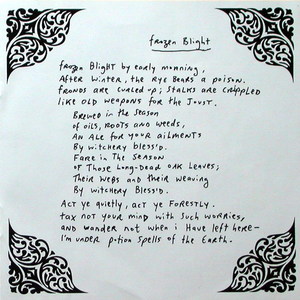 frozen Blight
frozen Blight by early morning,
After winter, the rye bears a poison.
Fronds are curled up; stalks are crippled
like old weapons for the joust.
Brewed in the season
of oils, roots and weeds,
An ale for your ailments
By witchery bless'd.
Fare in the season
of those long-dead oak leaves;
Their webs and their weaving
By witchery bless'd.
Act ye quietly, act ye forestly.
tax not your mind with such worries,
and wonder not when i have left here—
I'm under potion spells of the Earth.